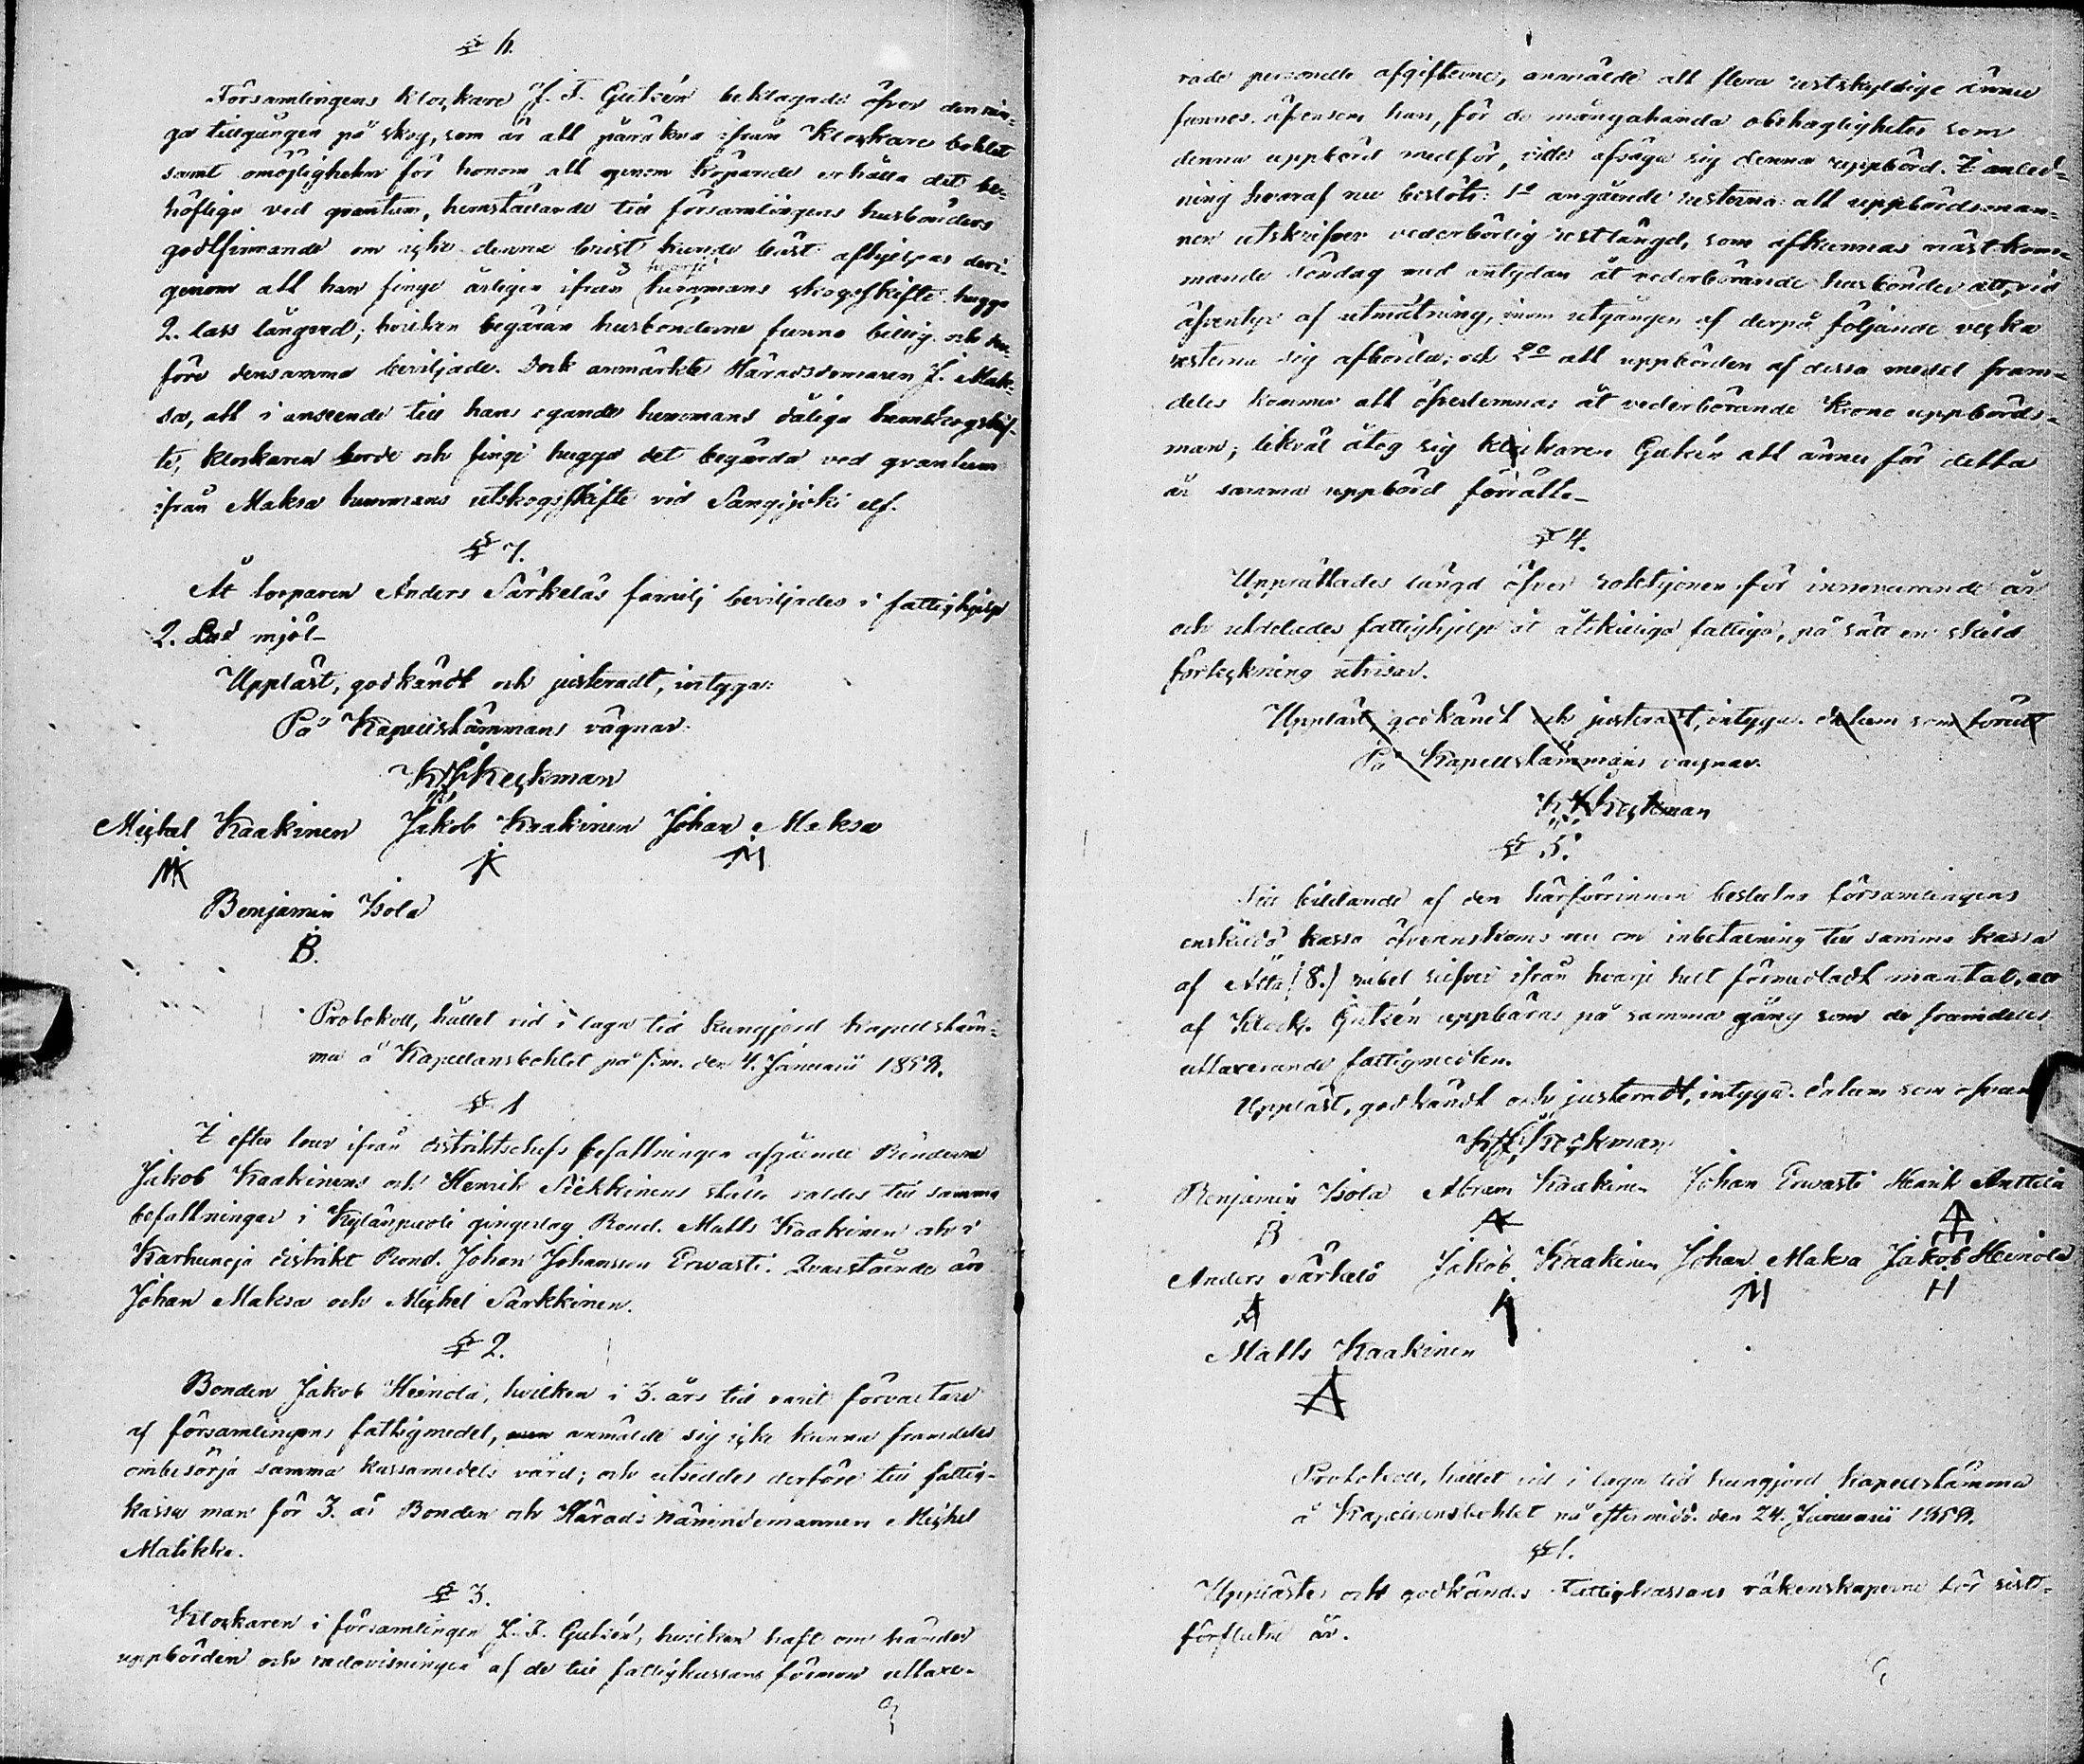 § 6.
Församlingens Klockare J. F. Gutzén beklagade öfver den rin-
ga tillgången på skog, som är att påräkna ifrån Klockare bohlet
samt omöjligheten för honom att genom köpande erhålla det be-
höfliga ved qvantum, hemställande till församlingens husbönders
godtfinnande om icke denna brist kunde bäst afhjelpas deri-
genom att han finge årligen ifrån hvarje hemmans skogsskifte hugga
2. lass långved; hvilken begäran husbönderne funno billig och
före densamma beviljade. Dock anmärkte Häradsdomaren J. Mak-
sa, att i anseende till hans egande hemmans dåliga hemskogskif-
te, klockaren borde och finge hugga det begärda ved qvantum
ifrån Maksa hemmans utskogsskifte vid Sangijoki elf.
§ 7.
Åt torparen Anders Särkeläs familj beviljades i fattighjelp
2. Lod mjöl_
Uppläst, godkändt och justeradt, intyga:
På Kapellstämmans vägnar:
K. F. Keckman
Michel Kaakinen Jakob Kaakinen Johan Maksa
MK K M
Benjamin Isola
B.
Protokoll, hållet vid i laga tid kungjord Kapellstäm-
ma å Kapellansbohlet på f.m. den 4. Januarii 1858.
§ 1
I efter trur ifrån distriktschefs befattningen afgående Bönderne
Jakob Kaakinens och Henrik Siekkinens ställe valdes till samma
befattningar i Kylänpuoli gingerlag Bond. Matts Kaakinen och i
Karhuncja distrikt Bond. Johan Johansson Erwasti. Qvarstående äro
Johan Maksa och Michel Särkkinen.
§ 2.
Bonden Jakob Heinola, hvilken i 3. års tid varit förvaltare
af församlingens fattigmedel, anmälde sig icke kunna framdeles
ombesörja samma kassamedels vård; och utseddes derföre till fattig-
kassa man för 3. år Bonden och Härads nämndemannen Michel
Matikka.
§ 3.
Klockaren i församlingen J. F. Gutzén, hvilken haft om händer
uppbörden och redovisningen af de till fattigkassans förmon uttaxe-
rade personella afgifterne, anmälde att flera restskyldige ännu
funnes. äfvensom han, för de mångahanda obehagligheter som
denna uppbörd medför, ville afsäga sig denna uppbörd. I anled-
ning hvaraf nu beslöts: 1o angående resterna: att uppbördsman-
nen utskrifver vederbörlig restlängd, som afkunnas näst kom-
mande söndag med antydan åt vederbörande husbönder att, vid
äfventyr af utmätning, inom utgången af derpå följande vecka
resterna sig afbörda; och 2o att uppbörden af dessa medel fram-
deles kommer att öfverlemnas åt vederbörande Krono uppbörds-
man; likväl åtog sig klockaren Gutzén att ännu för detta
år samma uppbörd förrätta_
§ 4.
Upprättades längd öfver rotehjonen för innevarande år
och utdelades fattighjelp åt åtskilliga fattiga, på sätt en skild
förteckning utvisar.
Uppläst, godkändt och justeradt, intyga. datum som förutt
På Kapellstämmans vägnar.
K. F. Keckman
§ 5.
Till bildande af den härförinnan beslutna församlingens
enskilda kassa öfverenskoms nu om inbetalning till samma kassa
af Åtta (8.) rubel silfver ifrån hvarje helt förmedladt mantal, att
af Klock. Gutzén uppbäras på samma gång som de framdeles
uttaxerande fattigmedlen.
Uppläst, godkändt och justeradt, intyga. datum som ofvan
K. F. Keckman
Benjamin Isola Abram Kaakinen Johan Erwasti Henrik Anttila
B A A
Anders Särkelä Jakob Kaakinen Johan Maksa Jakob Heinola
A M H
Matts Kaakinen
A
Protokoll, hållet vid i laga tid kungjord Kapellstämma
å Kapellansbohlet på eftermidd. den 24. Januarii 1858.
§ 1.
Upplästes och godkändes Fattigkassans räkenskaperne för sist-
förflutne år.